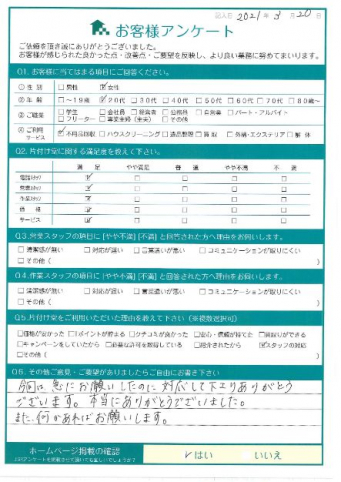 記入日 2021年 3月 20日
お客様アンケート
ご依頼を頂き誠にありがとうございました。
お客様が感じられた良かった点・改善点・ご要望を反映し、より良い業務に努めてまいります。
Q1. お客様に当てはまる項目にご回答ください。
① 性 別 □男性 ☑女性
② 年 齢 □~19歳 ☑20代 □30代 □40代 □50代 □60代 □70代 □80歳~
③ ご職業 □学生 □会社員 □経営者 □公務員 □自営業 □パート・アルバイト
□フリーター □専業主婦(主夫) □その他
④ ご利用サービス ☑不用品回収 □ハウスクリーニング □遺品整理 □買取 □外構・エクステリア □解体
Q2. 片付け堂に関する満足度を教えて下さい。
満足 やや満足 普通 やや不満 不満
電話スタッフ ☑
営業スタッフ ☑
作業スタッフ ☑
価格 ☑
サービス ☑
Q3. 営業スタッフの項目に [やや不満] [不満] と回答された方へ理由をお伺いします。
□清潔感が無い □対応が遅い □言葉遣いが悪い □コミュニケーションが取りにくい
□その他( )
Q4. 作業スタッフの項目に [やや不満] [不満] と回答された方へ理由をお伺いします。
□清潔感が無い □対応が遅い □言葉遣いが悪い □コミュニケーションが取りにくい
□その他( )
Q5. 片付け堂をご利用いただいた理由を教えて下さい(※複数選択可)
□価格が安かった □Tポイントが貯まる □クチコミが良かった □安心・信頼が持てた □買取りができる
□キャンペーンをしていたから □必要な許可を取得している □紹介されたから ☑スタッフの対応
□その他( )
Q6. その他ご意見・ご要望がありましたらご自由にお書き下さい
今回は急にお願いしたのに対応して下さりありがとう
ございます。本当にありがとうございました。
また、何かあればお願いします。
ホームページ掲載の確認
✓はい いいえ